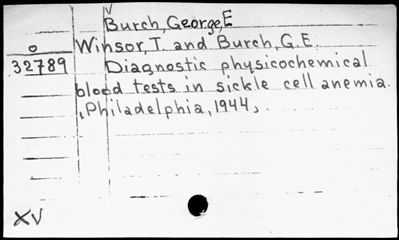 Burch, George, E
Winsor, T. and Burch, G.E.
32789
Diagnostic physicochemical
blood tests in sickle cell anemia.
, Philadelphia, 1944, .
XV